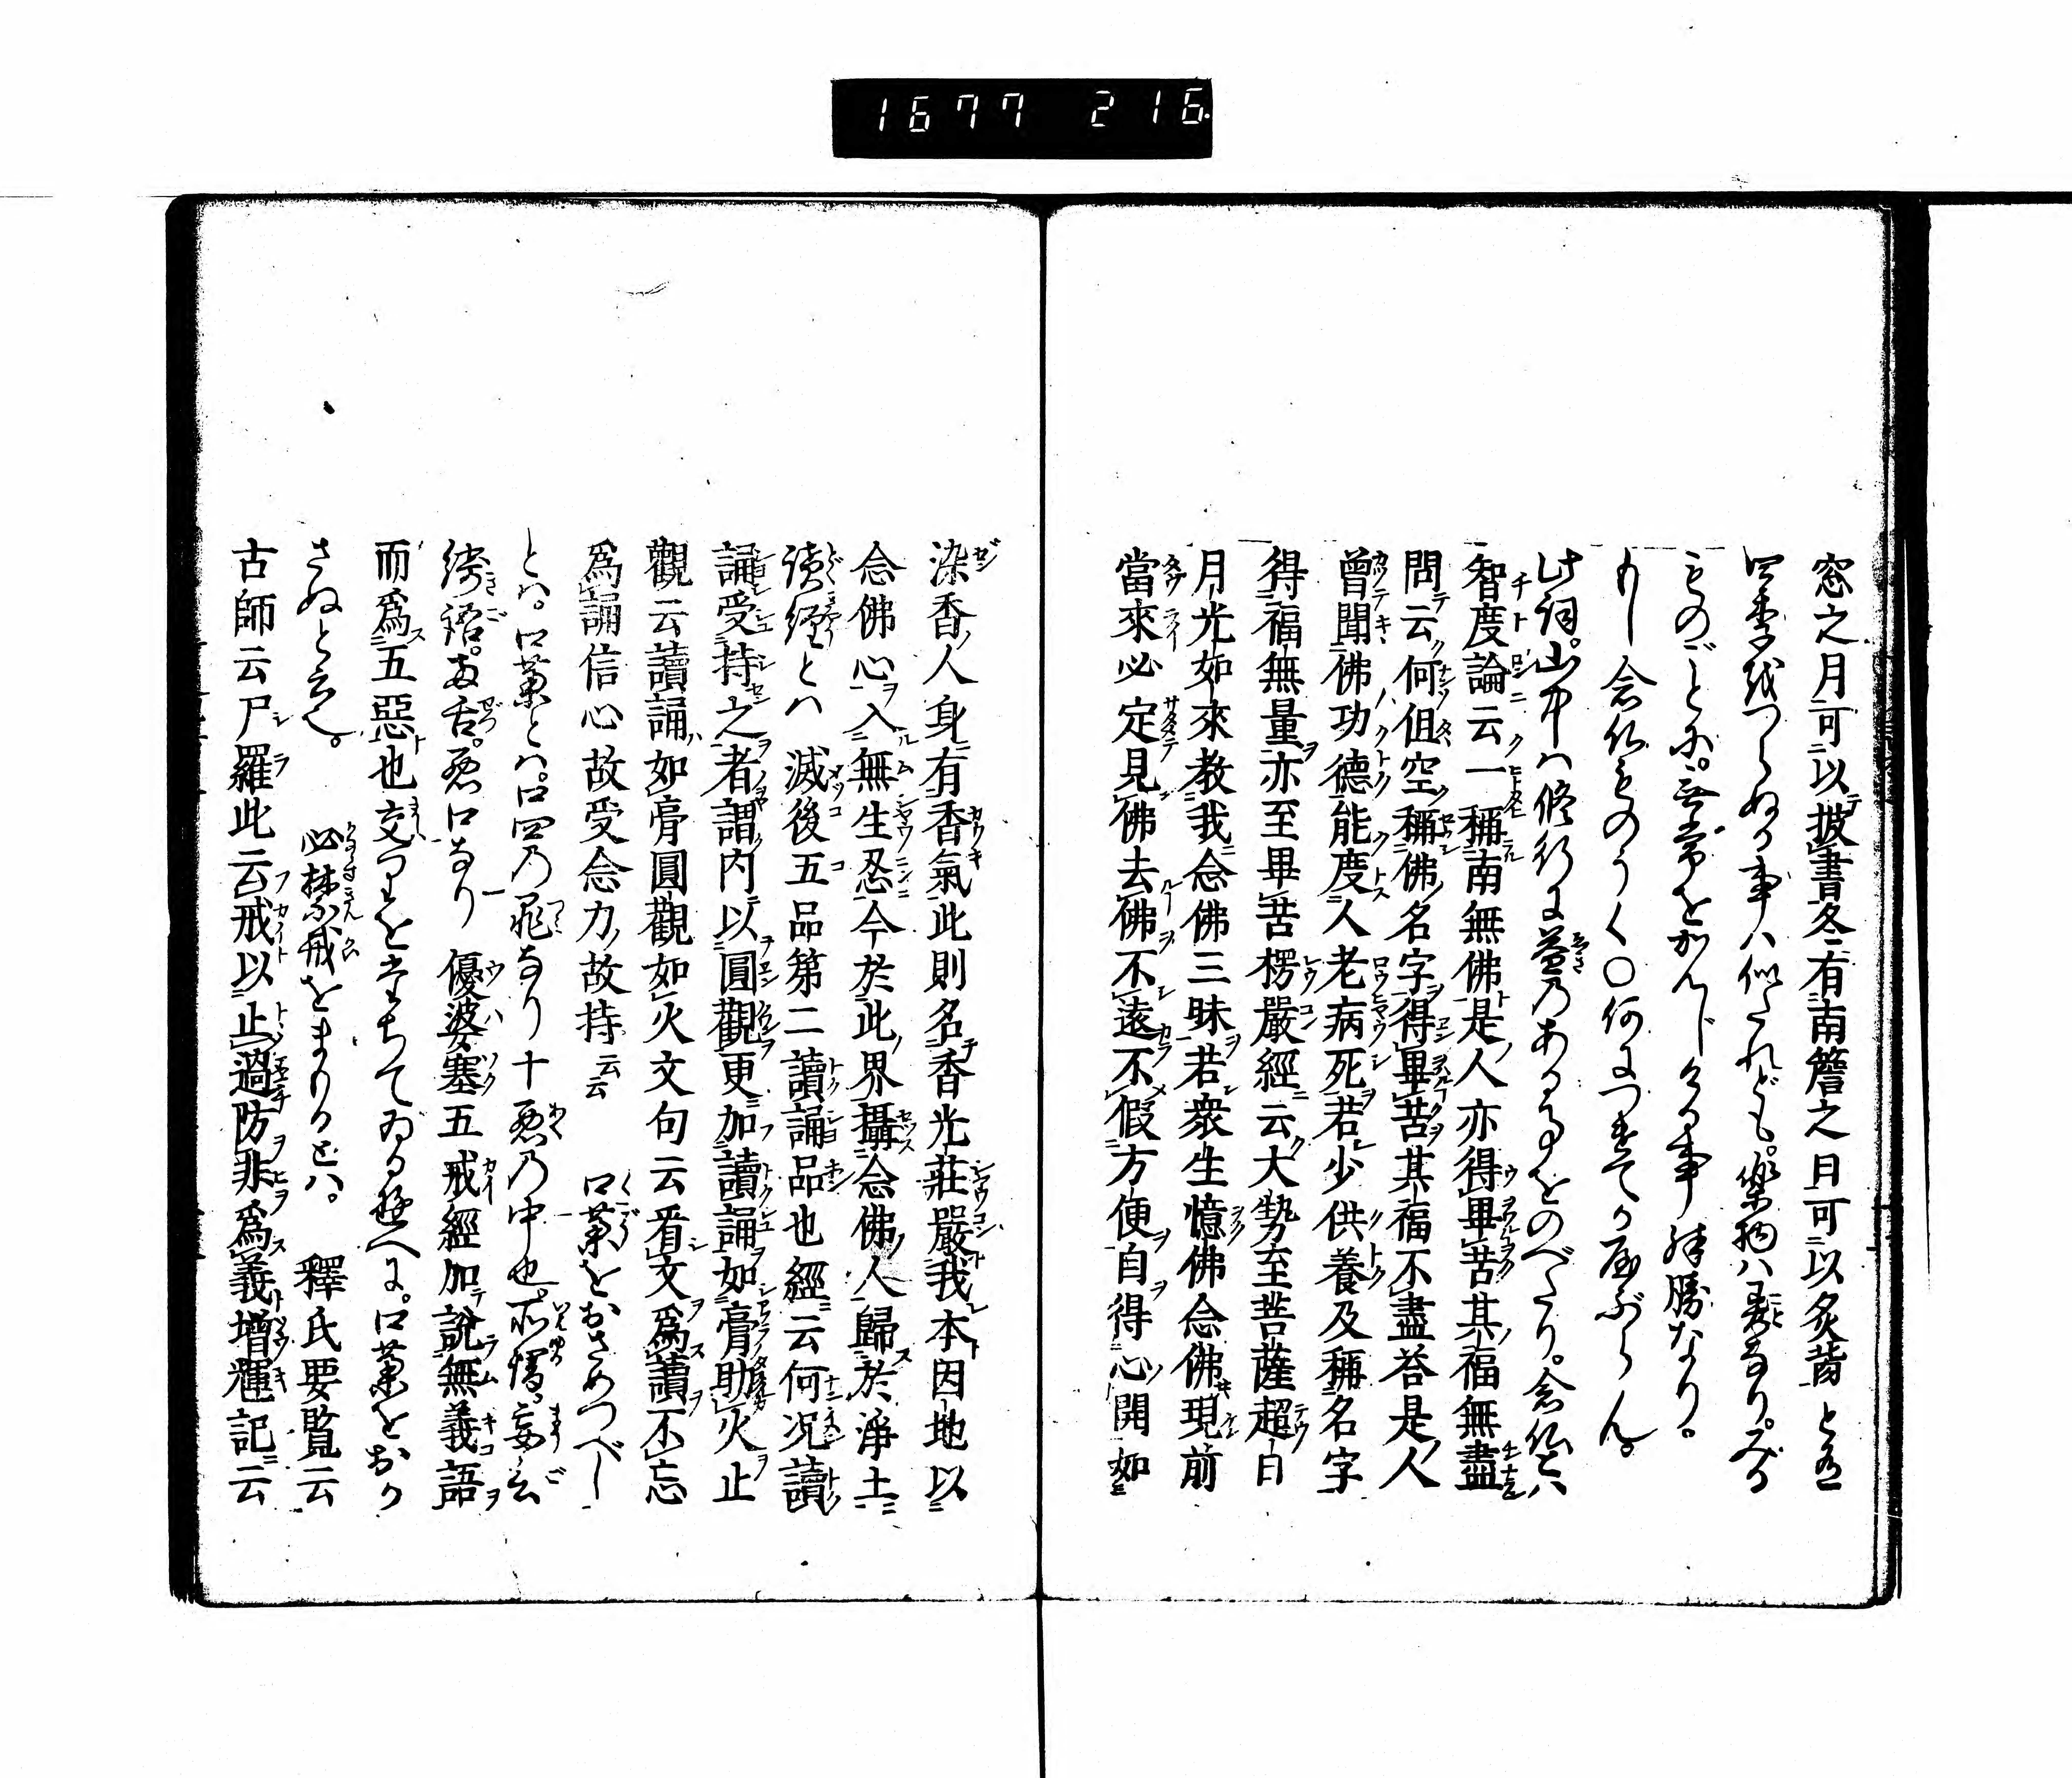 1677 216
窓之月可以披書冬有南簷之日可以炙背と也
四季をつらぬる事ハ似たれども。楽物ハ異なり。みる
ものごとに。無常をかんじける事殊勝なり。
もし念仏ものうく〇何につきてか
此詞。山中ハ修行に益のある事をのべたり。念仏とハ
智度論云一稱南無佛是人亦得畢苦其福無盡
問云何但空稱佛名字得畢苦其福不盡答是人
曾聞佛功德能度人老病死若少供養及稱名字
得福無量亦至畢苦楞嚴經云大勢至菩薩超日
月光如來教我念佛三昧若衆生憶佛念佛現前
當來必定見佛去佛不遠不假方便自得心開如
染香人身有香氣此則名香光莊嚴我本因地以
念佛心入無生忍今於此界攝念佛人歸於淨土
讀經とハ 滅後五品第二讀誦品也經云何況讀
誦受持之者謂内以圓觀更加讀誦如膏助火止
觀云讀誦如膏圓觀如火文句云看文爲讀不忘
爲誦信心故受念力故持云云 口業をおさめつべし
とハ。口業とハ。口四の罪なり十悪の中也。所謂。妄言
綺語。両舌。悪口なり 優婆塞五戒經加説無義語
而爲五惡也交りをたちてゐる故に。口業をおか
さぬと云。 必禁戒をまもるとハ。 釋氏要覧云
古師云尸羅此云戒以止過防非爲義增輝記云